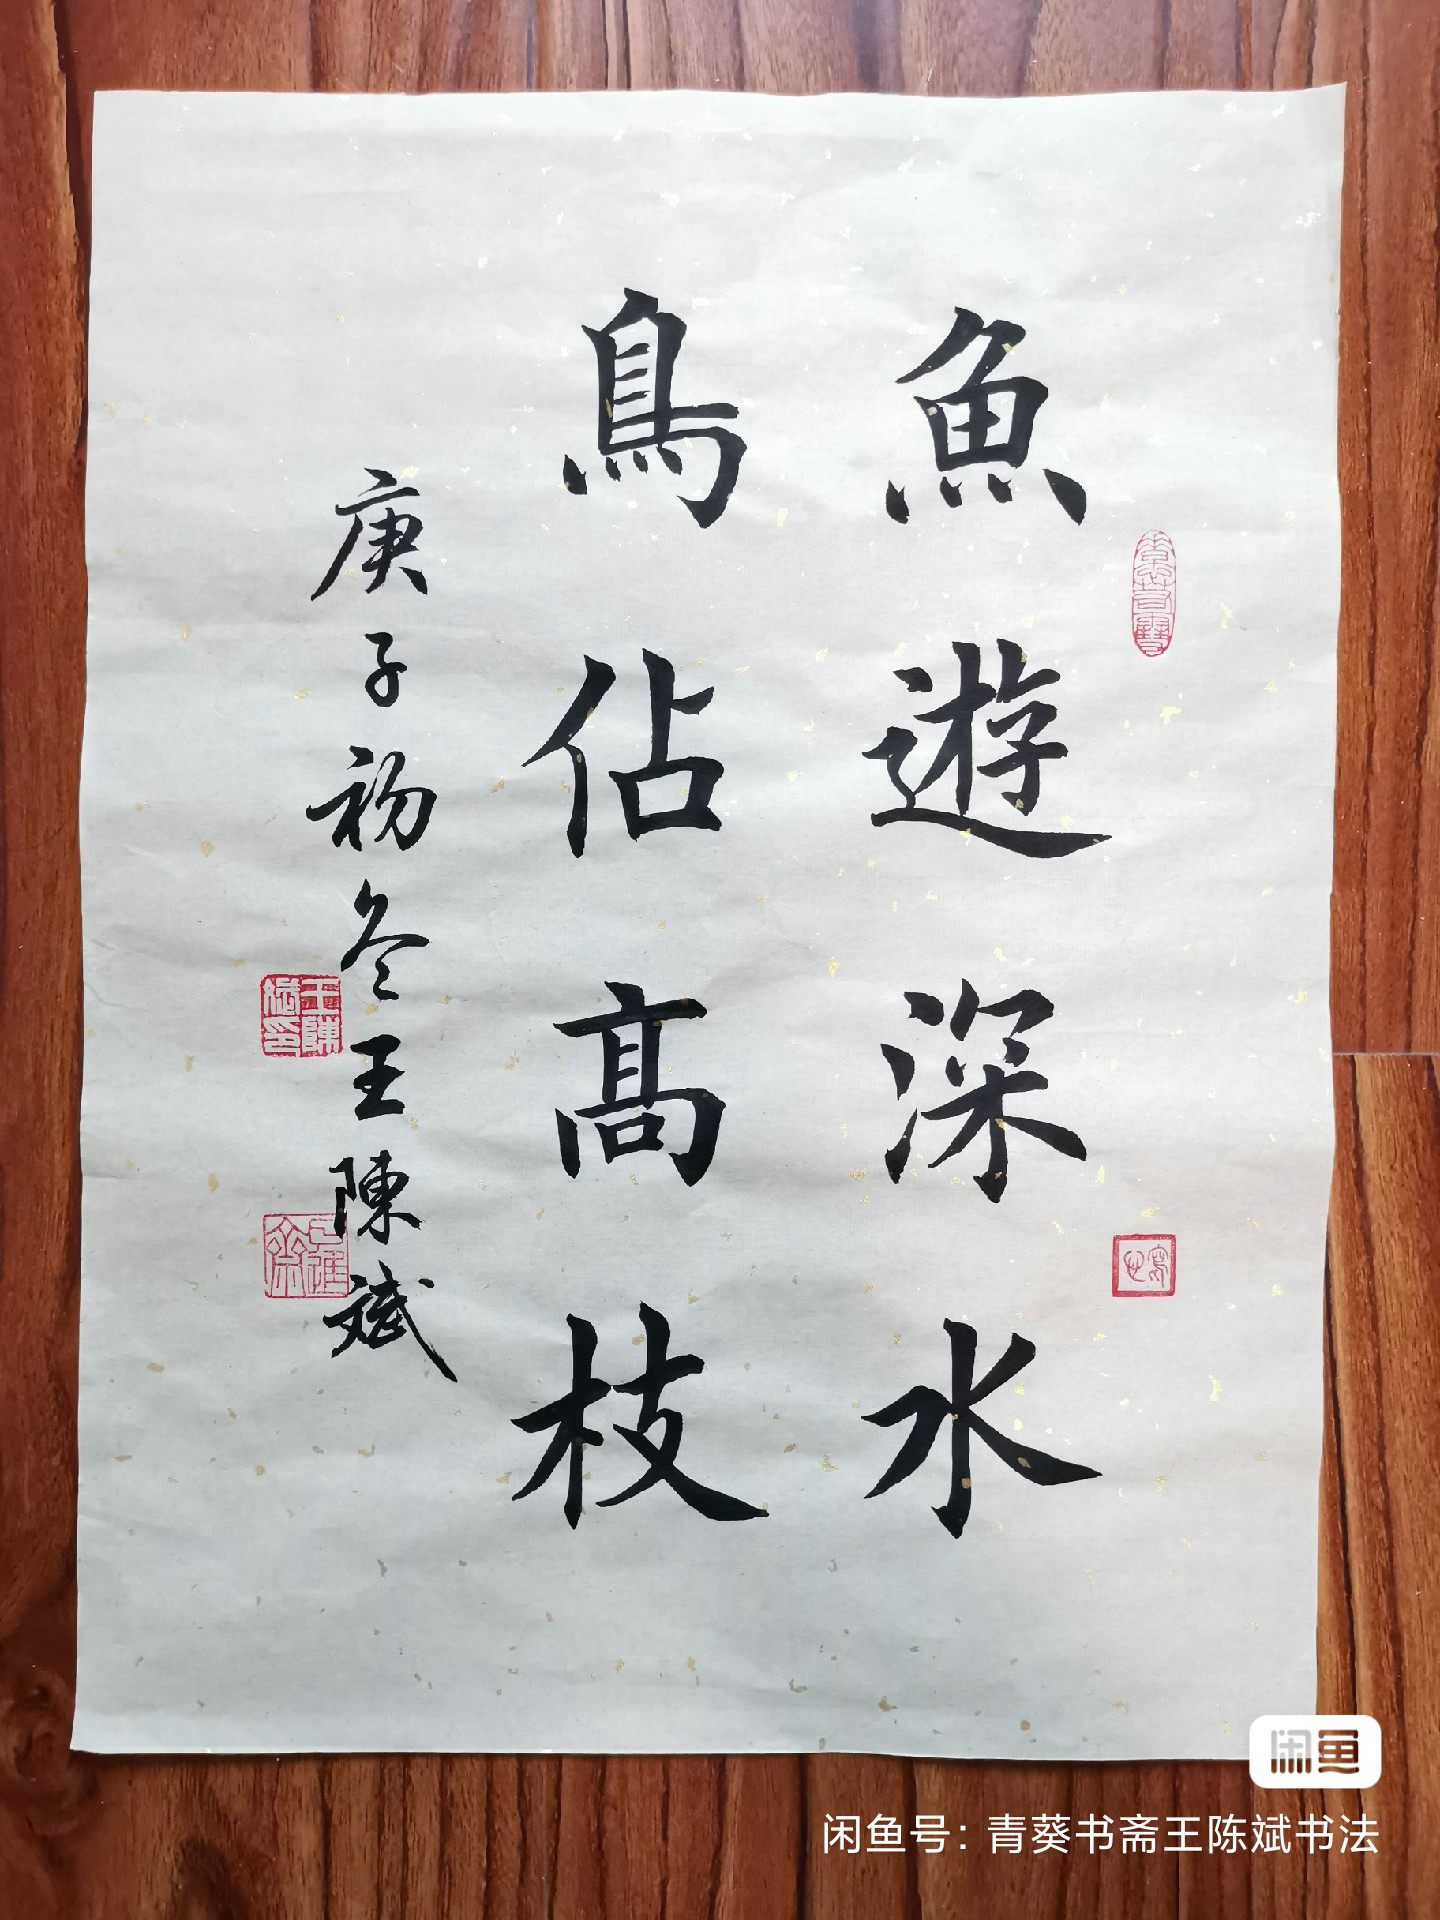 魚遊深水
鳥佔高枝
庚子初冬王陳斌
王陳斌印
闲鱼
闲鱼号：青葵书斋王陈斌书法